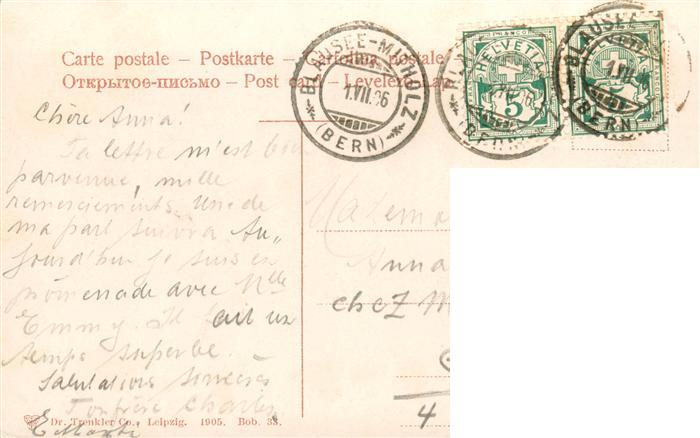 Carte postale – Postkarte – Cartolina postale
Открытое-письмо – Post card – Levelező-lap
BLAUSEE-MITHOLZ
1.VII.06
(BERN)
HELVETIA
5
BLAUSEE
1.VII.06
(BERN)
Chère Anna!
Ta lettre m'est bien
parvenue, mille
remerciements. Une de
ma part suivra. Au„
jourd'hui je suis en
promenade avec Mlle
Emmy. Il fait un
temps superbe.
Salutations sincères
Ton frère Charles
Madem
Anna
chez M
4
Dr. Trenkler Co., Leipzig. 1905. Bob. 33.